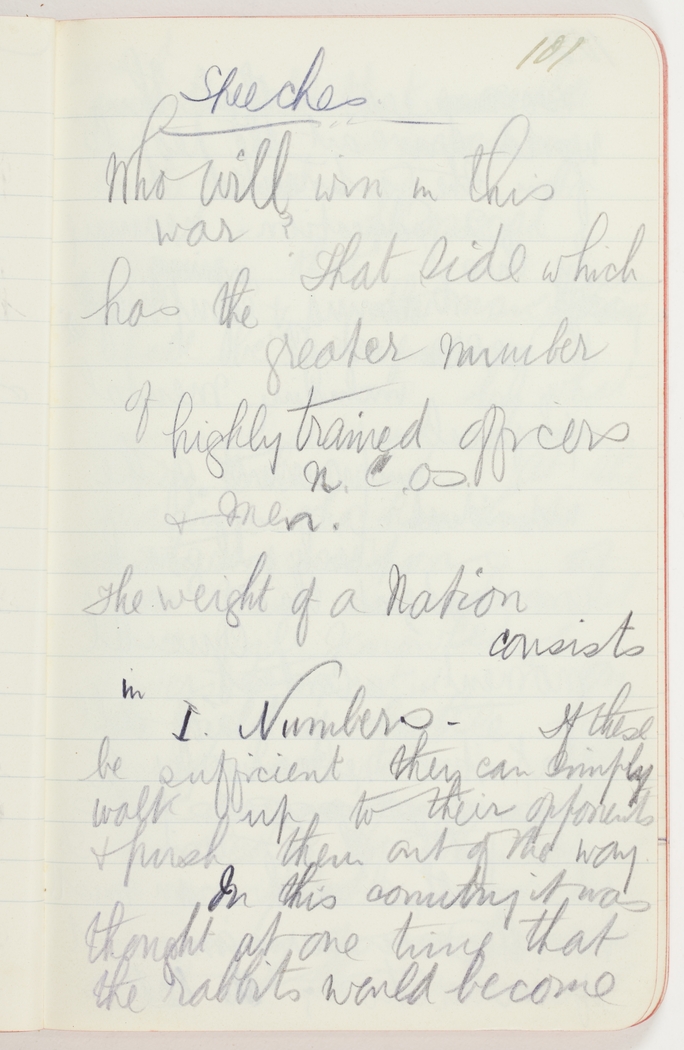 101
Speeches.
Who will win in this
war?
That side which
has the
greater number
of
highly trained officers
N.C.Os.
& Men.
The weight of a Nation
consists
in
I. Numbers. - If these
be sufficient they can simply
walk up to their opponents
& push them out of the way.
In this country it was
thought at one time that
the rabbits would become